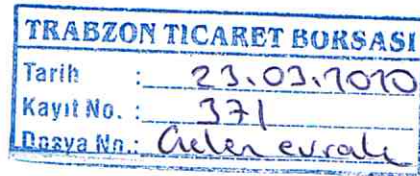 TRABZON TICARET BORSASI
Tarih : 23.03.2020
Kayıt No. : 371
Dosya No.: Gelen evrak